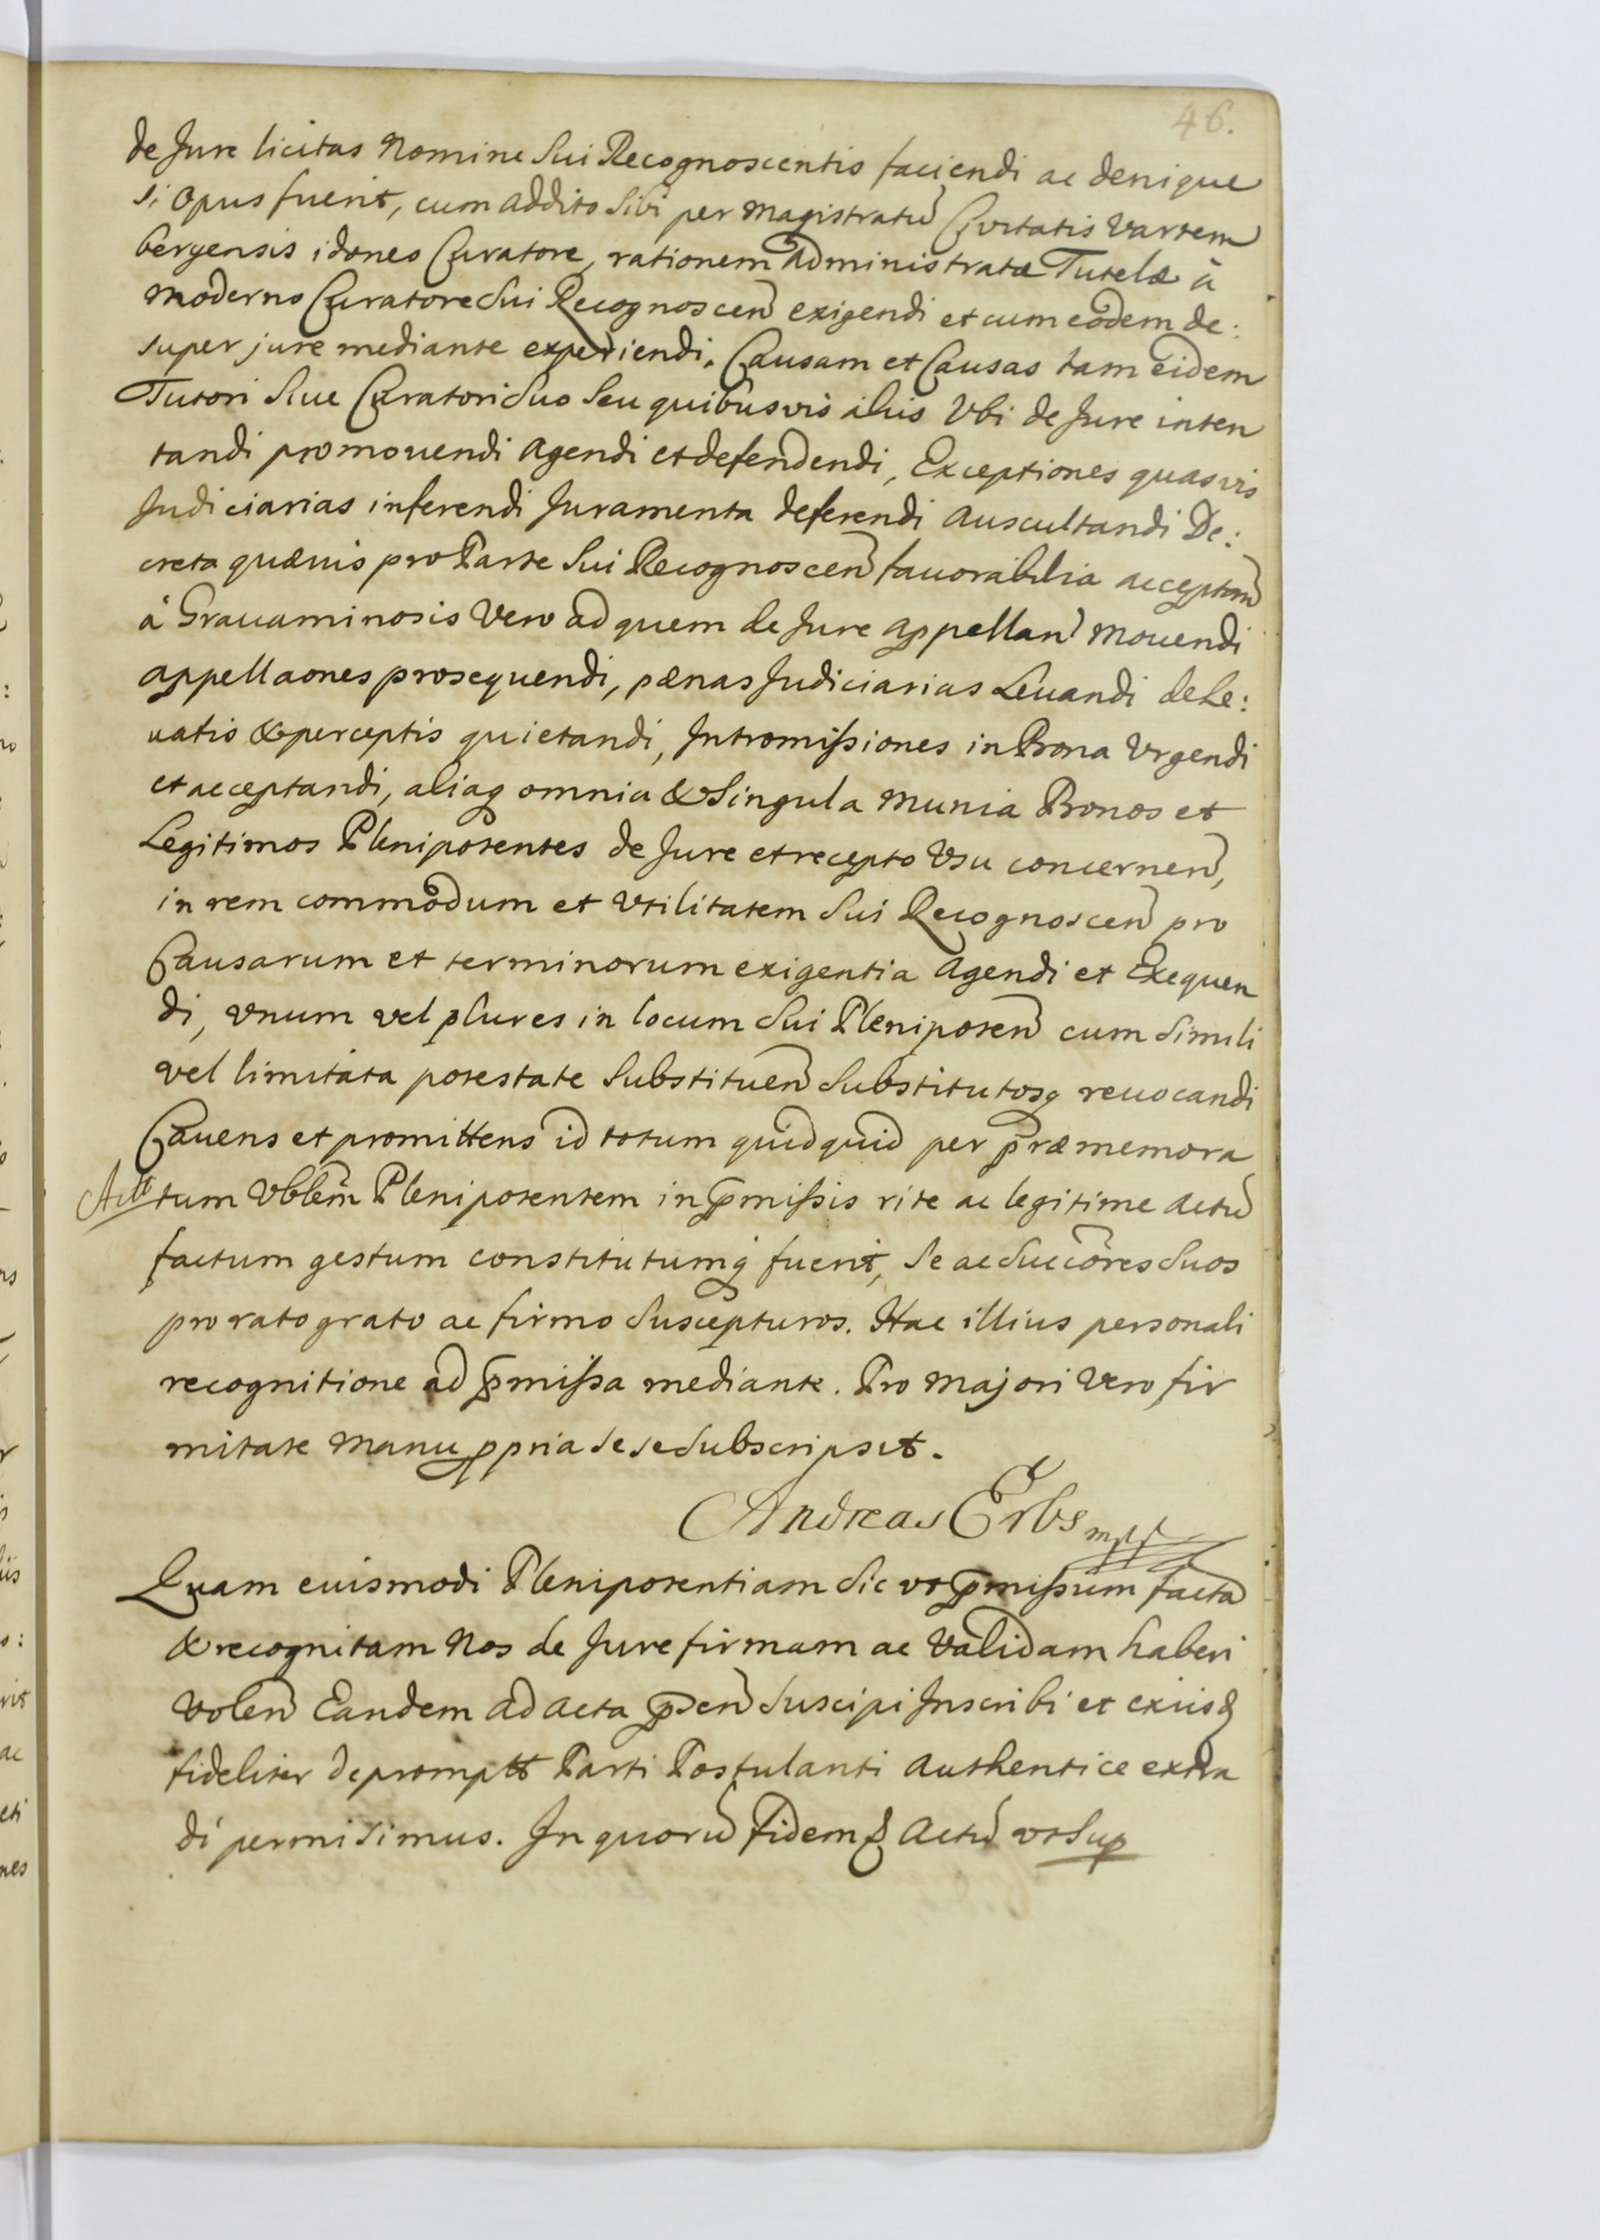 46.
de Jure licitas Nomine Sui Recognoscentis faciendi ac denique
si Opus fuerit, cum addito Sibi per Magistratũ Civitatis Vartem
bergensis idoneo Curatore, rationem administratæ Tutelæ à
moderno Curatore Sui Recognoscen̄ exigendi et cum eodem de:
super jure mediante experiendi. Causam et Causas tam eidem
Tutori Siue Curatori Suo Seu quibusvis aliis Vbi de Jure inten
tandi promouendi Agendi et defendendi, Exceptiones quasvis
Judiciarias inferendi Juramenta deferendi Auscultandi De:
creta quævis pro Parte Sui Recognoscen̄ fauorabilia acceptan̄
à Grauaminosis Vero ad quem de Jure appellan̄ Mouendi
appellaones prosequendi, pænas Judiciarias Leuandi de Le:
uatis & perceptis quietandi, Intromissiones in Bona Vrgendi
et acceptandi, aliaq omnia & Singula Munia Bonos et
Legitimos Plenipotentes de Jure et recepto Vsu concernen̄,
in rem commodum et Vtilitatem Sui Recognoscen̄ pro
Causarum et terminorum exigentia Agendi et Exequen
di, Vnum vel plures in locum Sui Plenipoten̄ cum Simili
vel limitata potestate Substituen̄ Substitutosq reuocandi
Cauens et promittens id totum quidquid per præmemora
tum Vblem̄ Plenipotentem in p̄missis rite ac legitime Actũ
factum gestum constitutumq fuerit, Se ac Succōres Suos
pro rato grato ac firmo Suscepturos. Hac illius personali
recognitione ad p̄missa mediante. Pro Majori Vero fir
mitate Manu ppria Sese Subscripsit.
Andreas Erbs mpp
Quam eiusmodi Plenipotentiam Sic vt p̄missum facta
& recognitam Nos de Jure firmam ac Validam haberi
Volen̄ Eandem Ad Acta p̄sen̄ Suscipi Inscribi et
fideliter Parti Postulanti Authentice extra
di permisimus. In quorũ fidem Actũ vt Sup